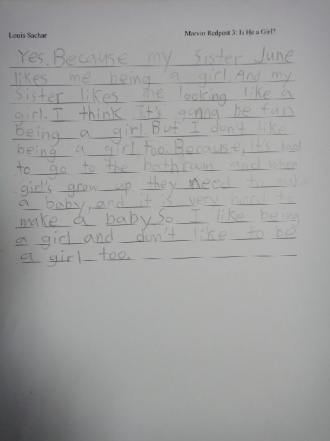 Louis Sachar Marvin Redpost 3: Is He a Girl?
Yes. Because my sister June
likes me being a girl. And my
sister likes me looking like a
girl. I think it's gonna be fun
being a girl. But I don't like
being a girl too. Because, it's hard
to go to the bathroom and when
girl's grow up they need to make
a baby, and it is very hard to
make a baby. So I like being
a girl and don't like to be
a girl too.